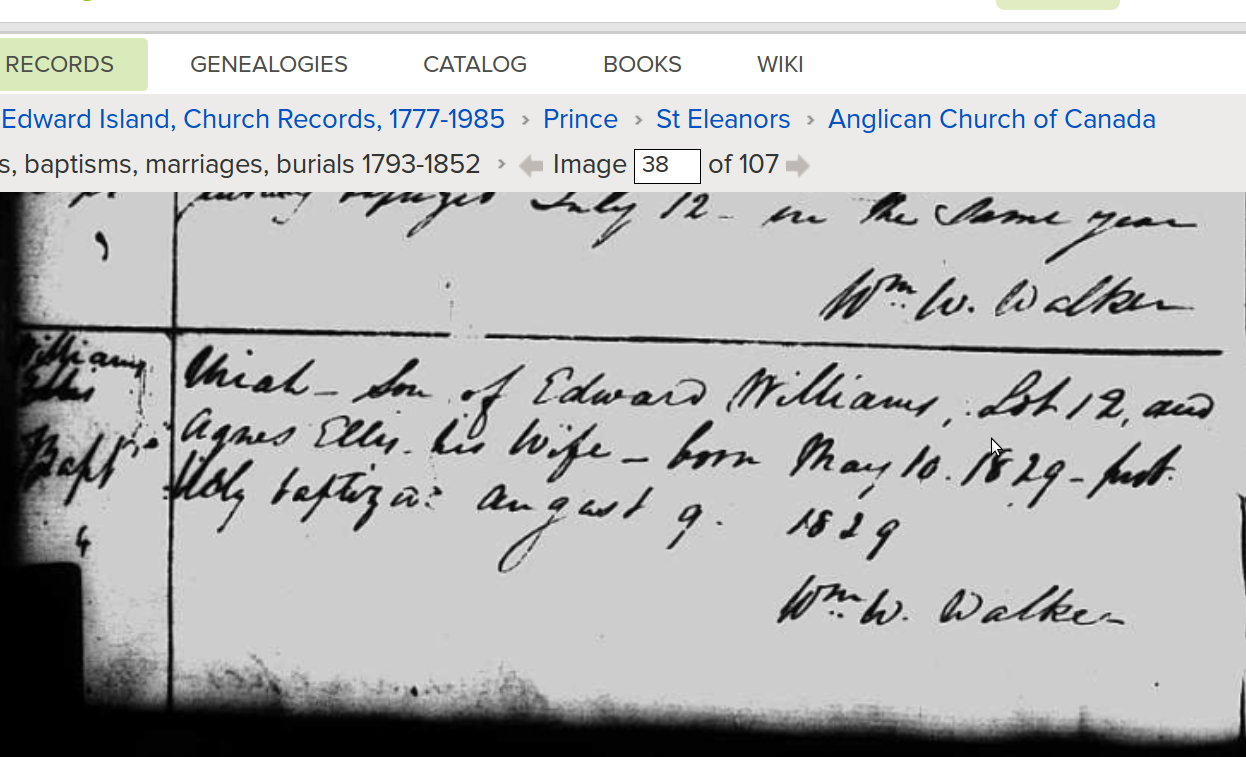 RECORDS GENEALOGIES CATALOG BOOKS WIKI
Edward Island, Church Records, 1777-1985 › Prince › St Eleanors › Anglican Church of Canada
s, baptisms, marriages, burials 1793-1852 › Image 38 of 107
July 12 - in the Same year
Wm. W. Walker
Williams
Ellis
Bapt
4
Uriah - Son of Edward Williams, Lot 12, and
Agnes Ellis - his Wife - born May 10. 1829 - pub.
lickly baptized August 9. 1829
Wm. W. Walker